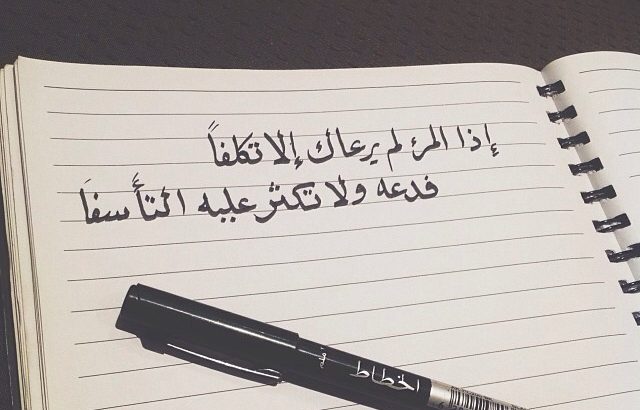 إذا المرء لم يرعاك إلا تكلفاً
فدعه ولا تكثر عليه التأسفَا
الخطاط